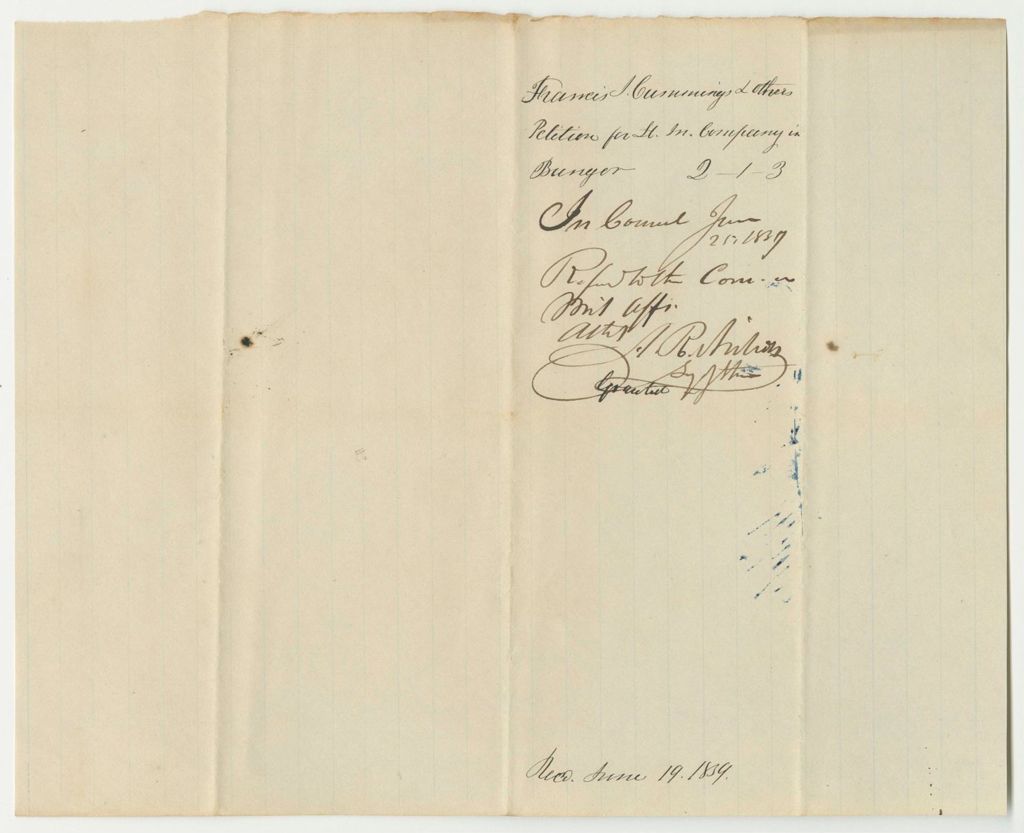 Francis J. Cummings & others
Petition for Lt. In. Company in
Bangor 2-1-3
In Council June
25, 1839
Referd to the Com. on
Mil Affs.
Attest
A. R. Nichols
Secy of State
Granted
Recd. June 19. 1839.